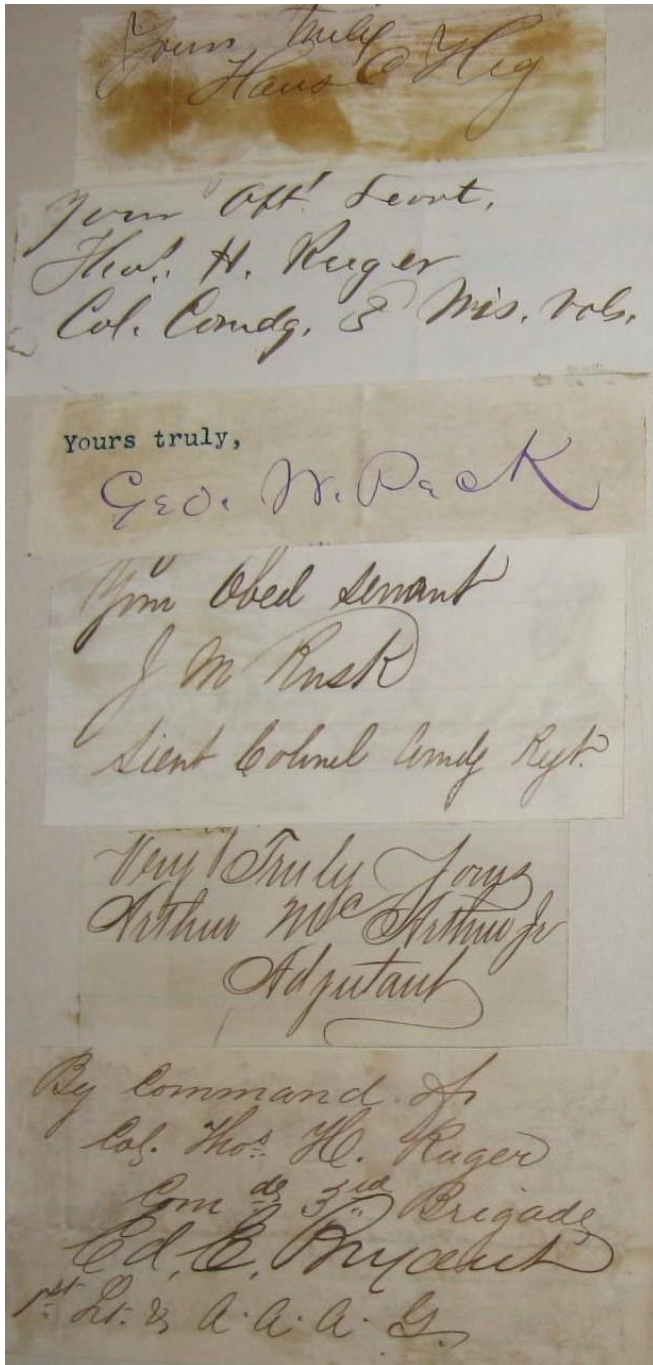 Yours truly
Hans C Heg
Your Obt Servt,
Thos. H. Ruger
Col. Comdg. 3 Wis. Vols.
Yours truly,
Geo. W. Peck
Your Obed Servant
J M Rusk
Lieut Colonel Comdg Regt.
Very Truly Yours
Arthur McArthur Jr
Adjutant
By Command of
Col. Thos. H. Ruger
Comdg 3rd Brigade
Ed. E. Bryant
1st Lt. & A.A.A.G.